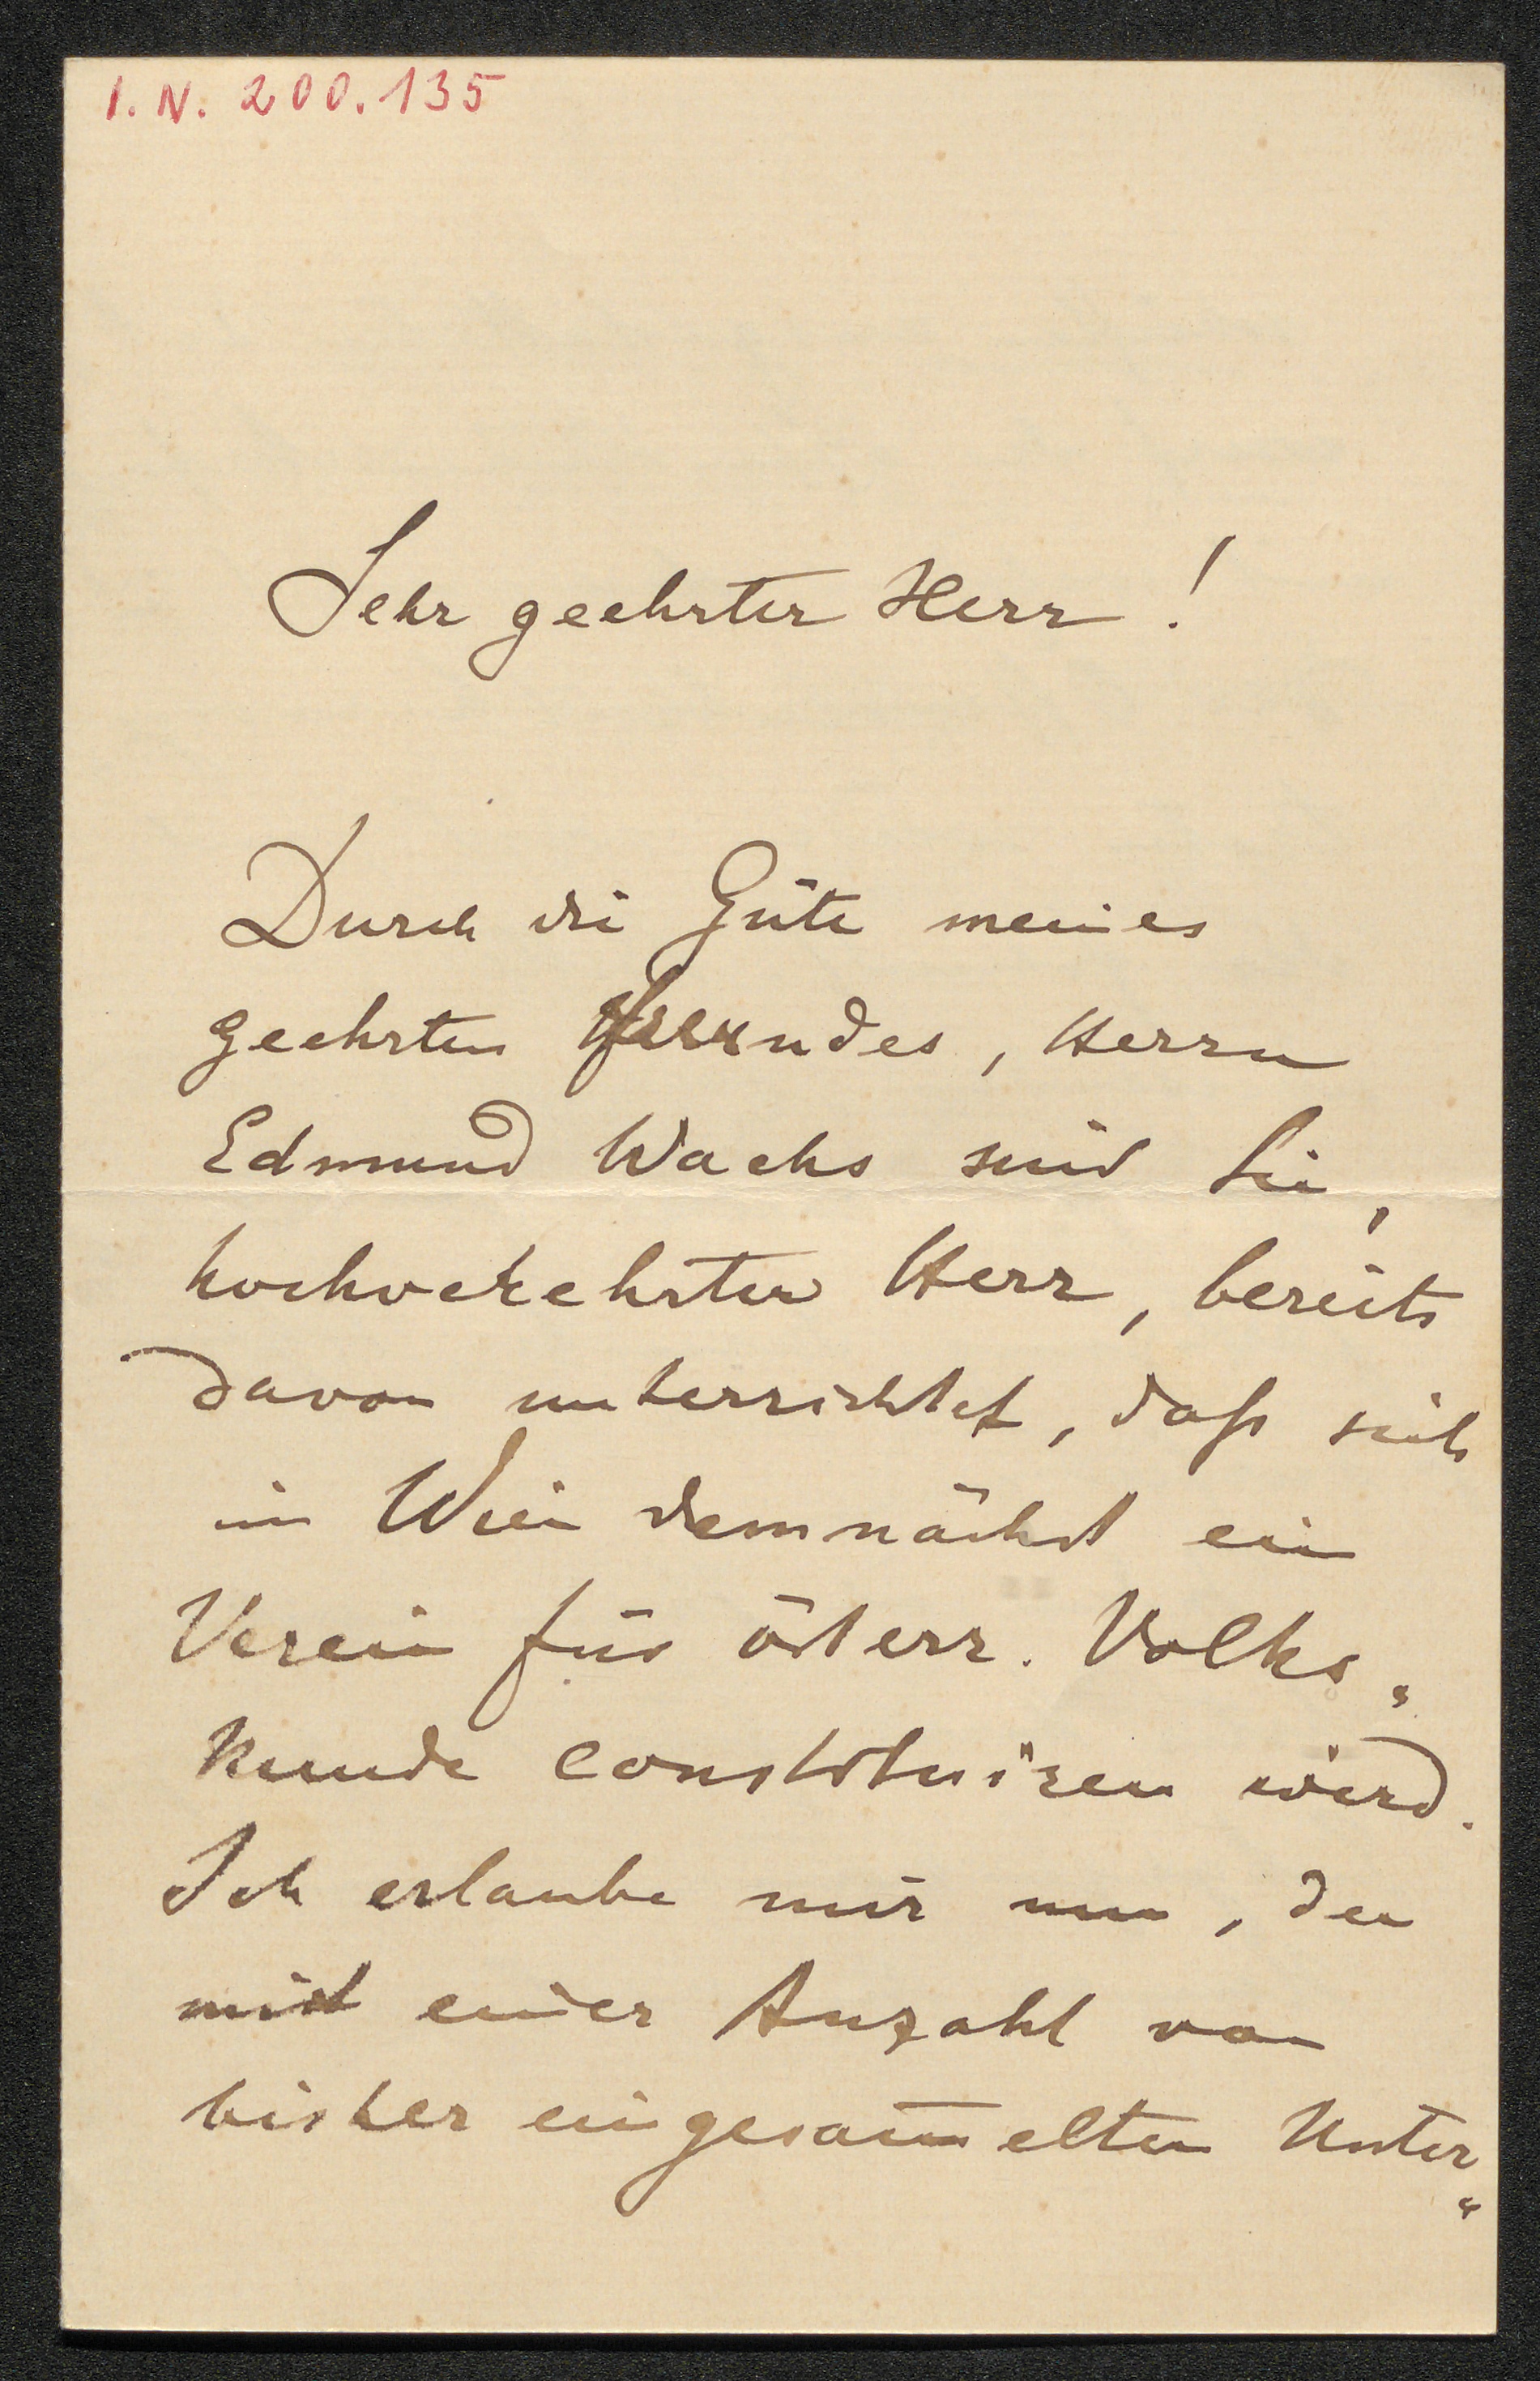 I. N. 200.135
Sehr geehrter Herr!
Durch die Güte meines
geehrten Freundes, Herrn
Edmund Wachs sind Sie,
hochverehrter Herr, bereits
davon unterrichtet, daß sich
in Wien demnächst ein
Verein für österr. Volks„
kunde constituiren wird.
Ich erlaube mir nun, den
mit einer Anzahl von
bisher eingesam̅elten Unter„